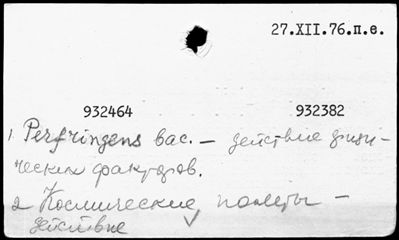 27.XII.76.п.е.
932464 932382
1 Perfringens bac. — действие физи-
ческих факторов.
2 Космические полеты —
действие